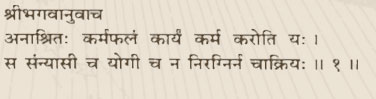 श्रीभगवानुवाच
अनाश्रितः कर्मफलं कार्यं कर्म करोति यः ।
स संन्यासी च योगी च न निरग्निर्न चाक्रियः ॥ १ ॥